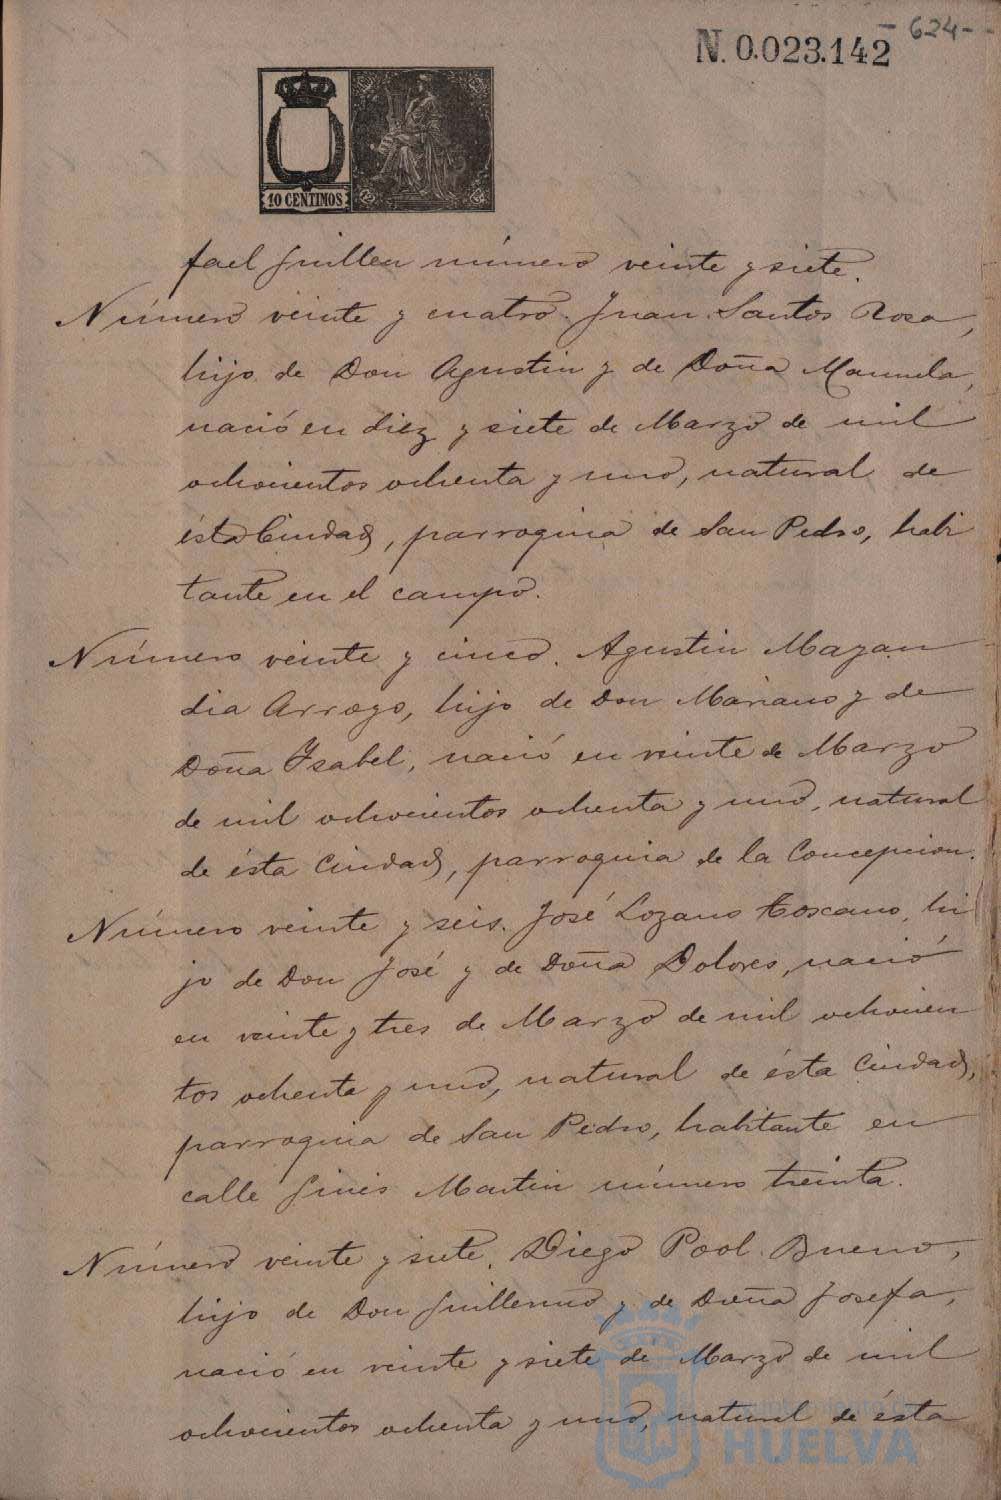 -624-
N. 0.023.142
10 CENTIMOS
fael Guillen número veinte y siete.
Número veinte y cuatro. Juan Santos Rosa,
hijo de Don Agustin y de Doña Manuela,
nació en diez y siete de Marzo de mil
ochocientos ochenta y uno, natural de
ésta Ciudad, parroquia de San Pedro, habi
tante en el campo.
Número veinte y cinco. Agustin Mazan
dia Arroyo, hijo de Don Mariano y de
Doña Isabel, nació en veinte de Marzo
de mil ochocientos ochenta y uno, natural
de ésta Ciudad, parroquia de la Concepcion.
Número veinte y seis. José Lozano Toscano, hi
jo de Don José y de Doña Dolores, nació
en veinte y tres de Marzo de mil ochocien
tos ochenta y uno, natural de ésta Ciudad,
parroquia de San Pedro, habitante en
calle Ginés Martin número treinta.
Número veinte y siete. Diego Pool Bueno,
hijo de Don Guillermo y de Doña Josefa,
nació en veinte y siete de Marzo de mil
ochocientos ochenta y uno, natural de ésta
Ayuntamiento de
HUELVA